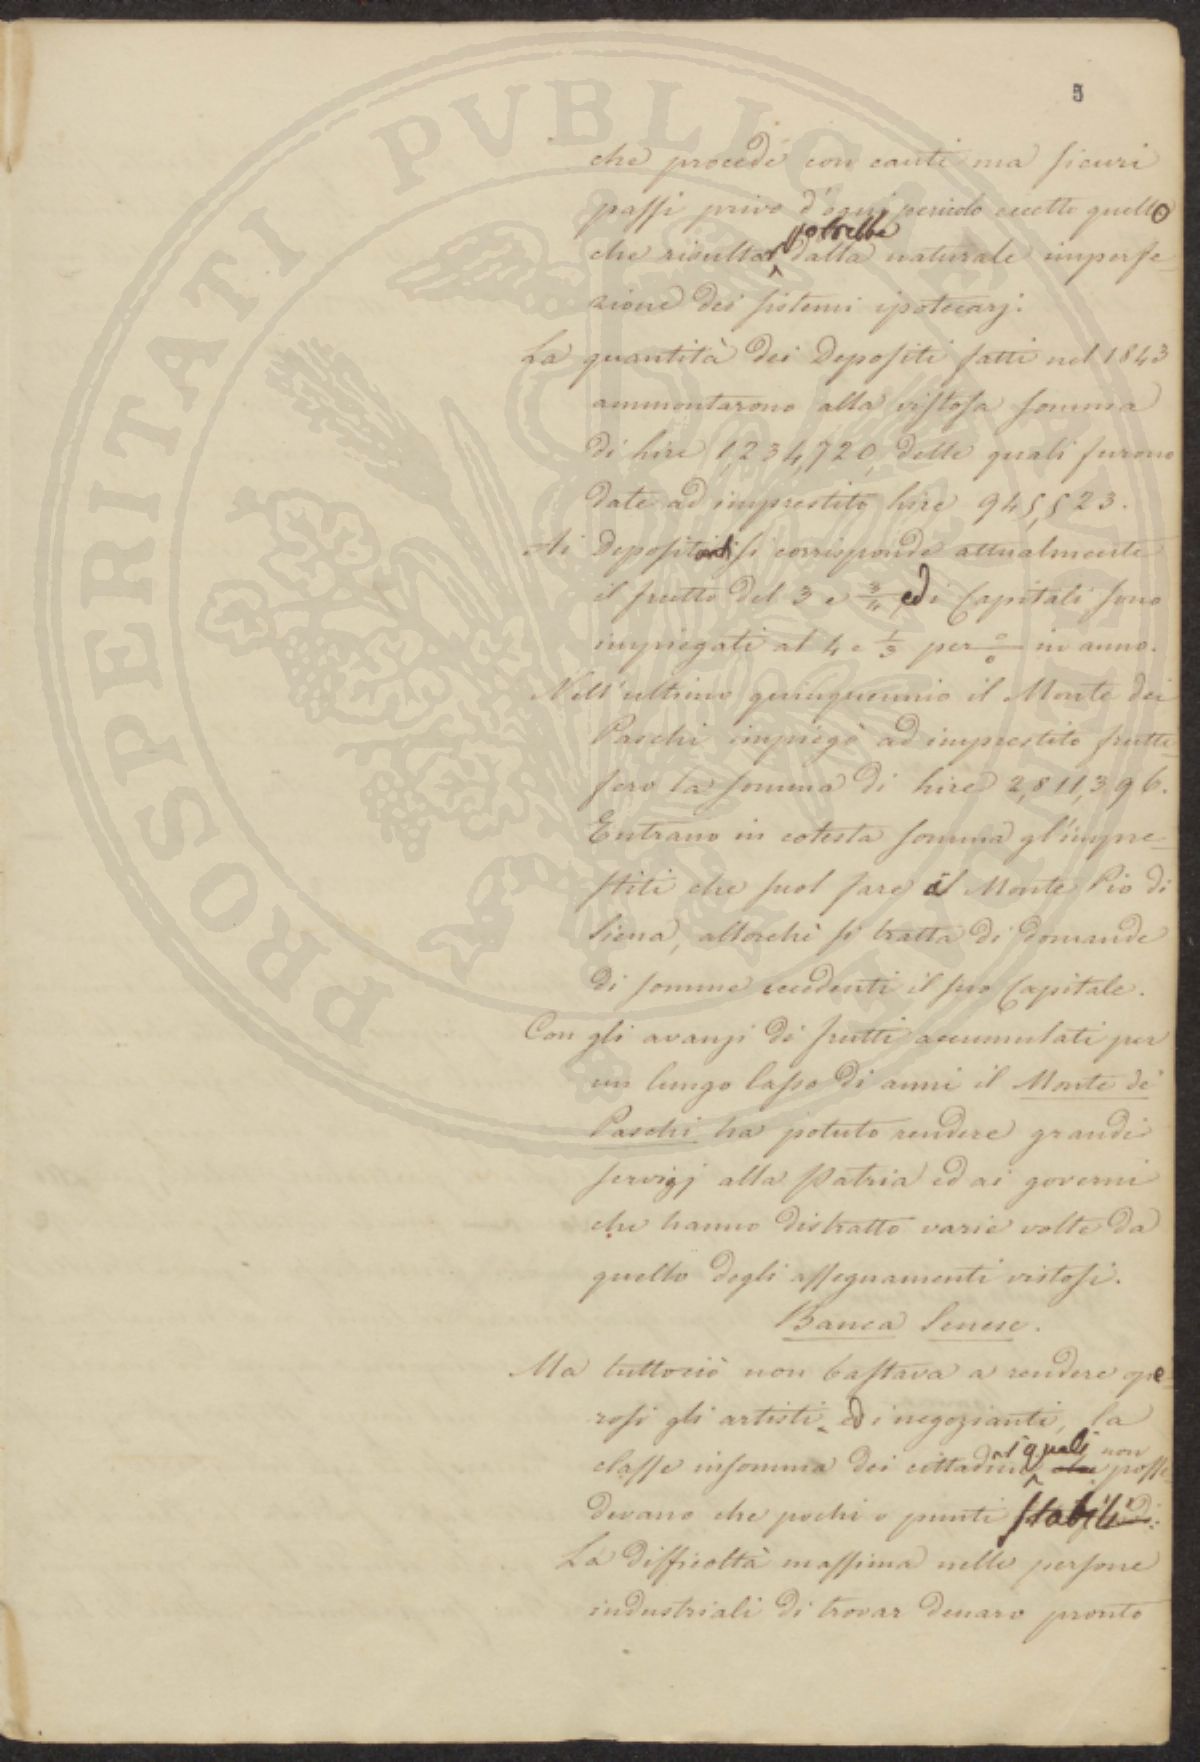 5
che procede con cauti ma sicuri
passi privo d'ogni pericolo eccetto quello
che risultar potrebbe dalla naturale imperfe-
zione dei sistemi ipotecarj.
La quantità dei Depositi fatti nel 1843
ammontarono alla vistosa somma
di Lire 1,234,720, delle quali furono
date ad imprestito Lire 945,523.
Ai Depositanti si corrisponde attualmente
il frutto del 3 e 3/4, ed i Capitali sono
impiegati al 4 e 1/3 per o/o in anno.
Nell'ultimo quinquennio il Monte dei
Paschi impiegò ad imprestito frutti-
fero la somma di Lire 2,811,396.
Entrano in cotesta somma gl'impre-
stiti che suol fare il Monte Pio di
Siena, allorchè si tratta di domande
di somme eccedenti il suo Capitale.
Con gli avanzi di frutti accumulati per
un lungo lasso di anni il Monte de'
Paschi ha potuto rendere grandi
servigj alla Patria ed ai governi
che hanno distratto varie volte da
quello degli assegnamenti vistosi.
Banca Senese.
Ma tuttociò non bastava a rendere ope-
rosi gli artisti, ed i negozianti, la
classe insomma dei cittadini i quali non posse-
devano che pochi o punti stabili.
La difficoltà massima nelle persone
industriali di trovar denaro pronto
PROSPERITATI PVBLICAE